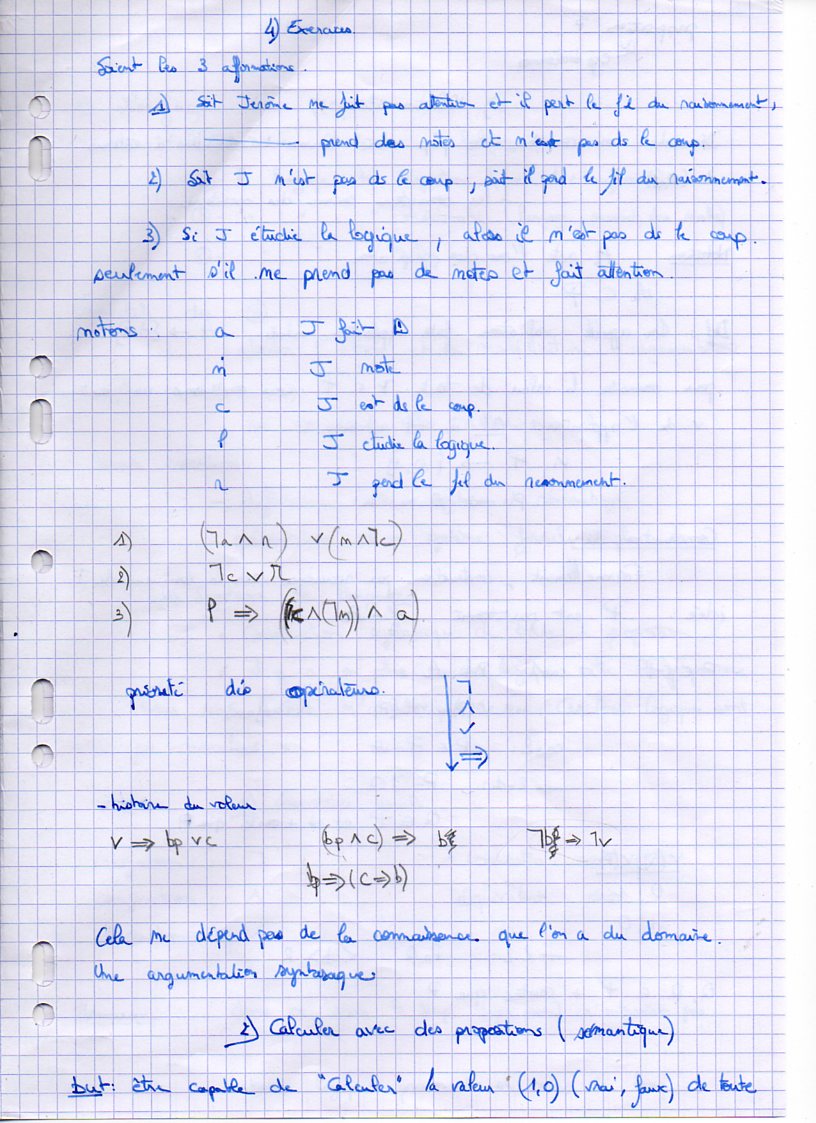 4) Exercices
Soient les 3 affirmations.
1) Soit Jerôme ne fait pas attention et il pert le fil du raisonnement,
prend des notes et n'est pas ds le coup.
2) Soit J n'est pas ds le coup, soit il perd le fil du raisonnement.
3) Si J étudie la logique, alors il n'est pas ds le coup.
seulement s'il ne prend pas de notes et fait attention.
notons : a J fait
n J note
c J est ds le coup.
l J étudie la logique.
r J perd le fil du raisonnement.
1) (¬a ∧ r) ∨ (n ∧ ¬c)
2) ¬c ∨ r
3) l ⇒ ( ∧ (¬n)) ∧ a)
priorité des opérateurs. ¬
∧
∨
⇒
- histoire du voleur
v ⇒ bp ∨ c (bp ∧ c) ⇒ b ¬b ⇒ ¬v
bp ⇒ (c ⇒ b)
Cela ne dépend pas de la connaissance que l'on a du domaine.
Une argumentation syntaxique.
2) Calculer avec des propositions (sémantique)
But : être capable de "Calculer" la valeur (1,0) (vrai, faux) de toute